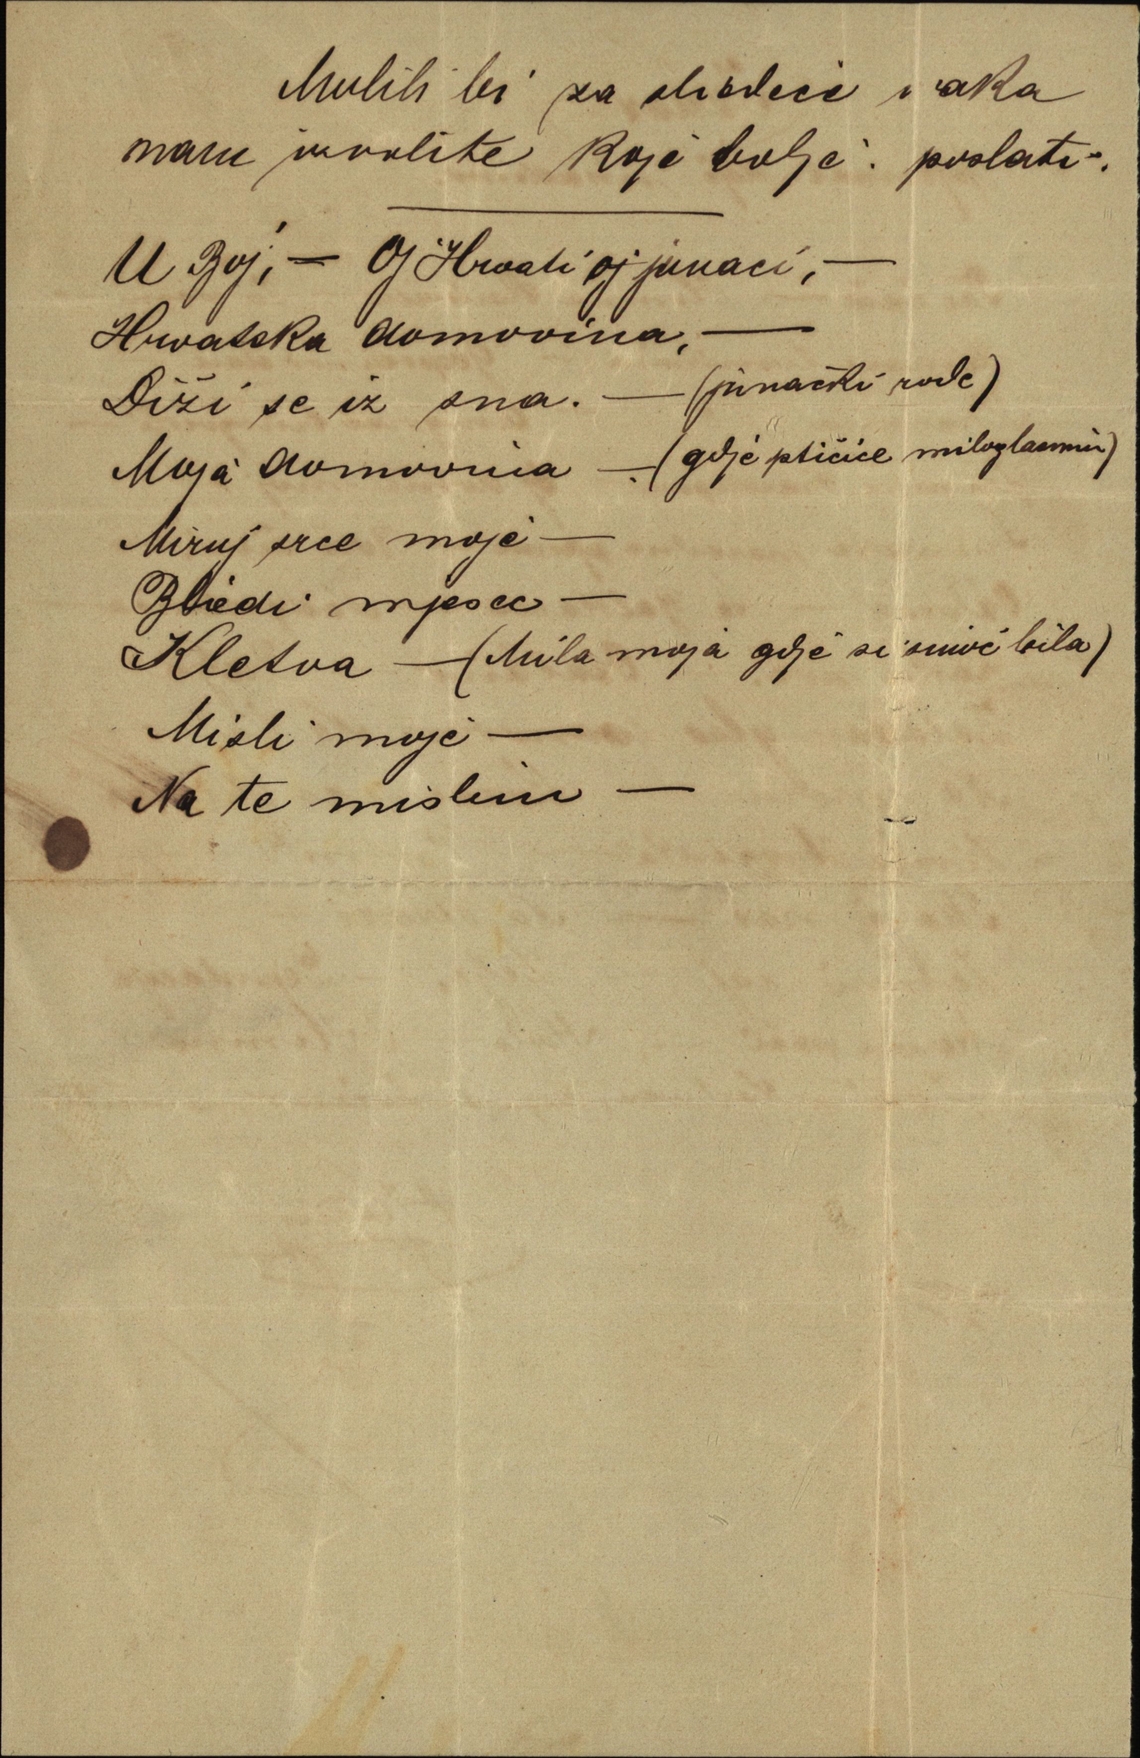 Molili bi za sledeće i aka
nam izvolite koje bolje. poslati.
U Boj, — Oj Hrvati oj junaci, —
Hrvatska domovina, —
Diži se iz sna. — (junački rode)
Moja domovina — (gdje ptičice miloglasnim)
Miruj srce moje —
Bliedi mjesec —
Kletva — (Mila moja gdje si sinoć bila)
Misli moje —
Na te mislim —